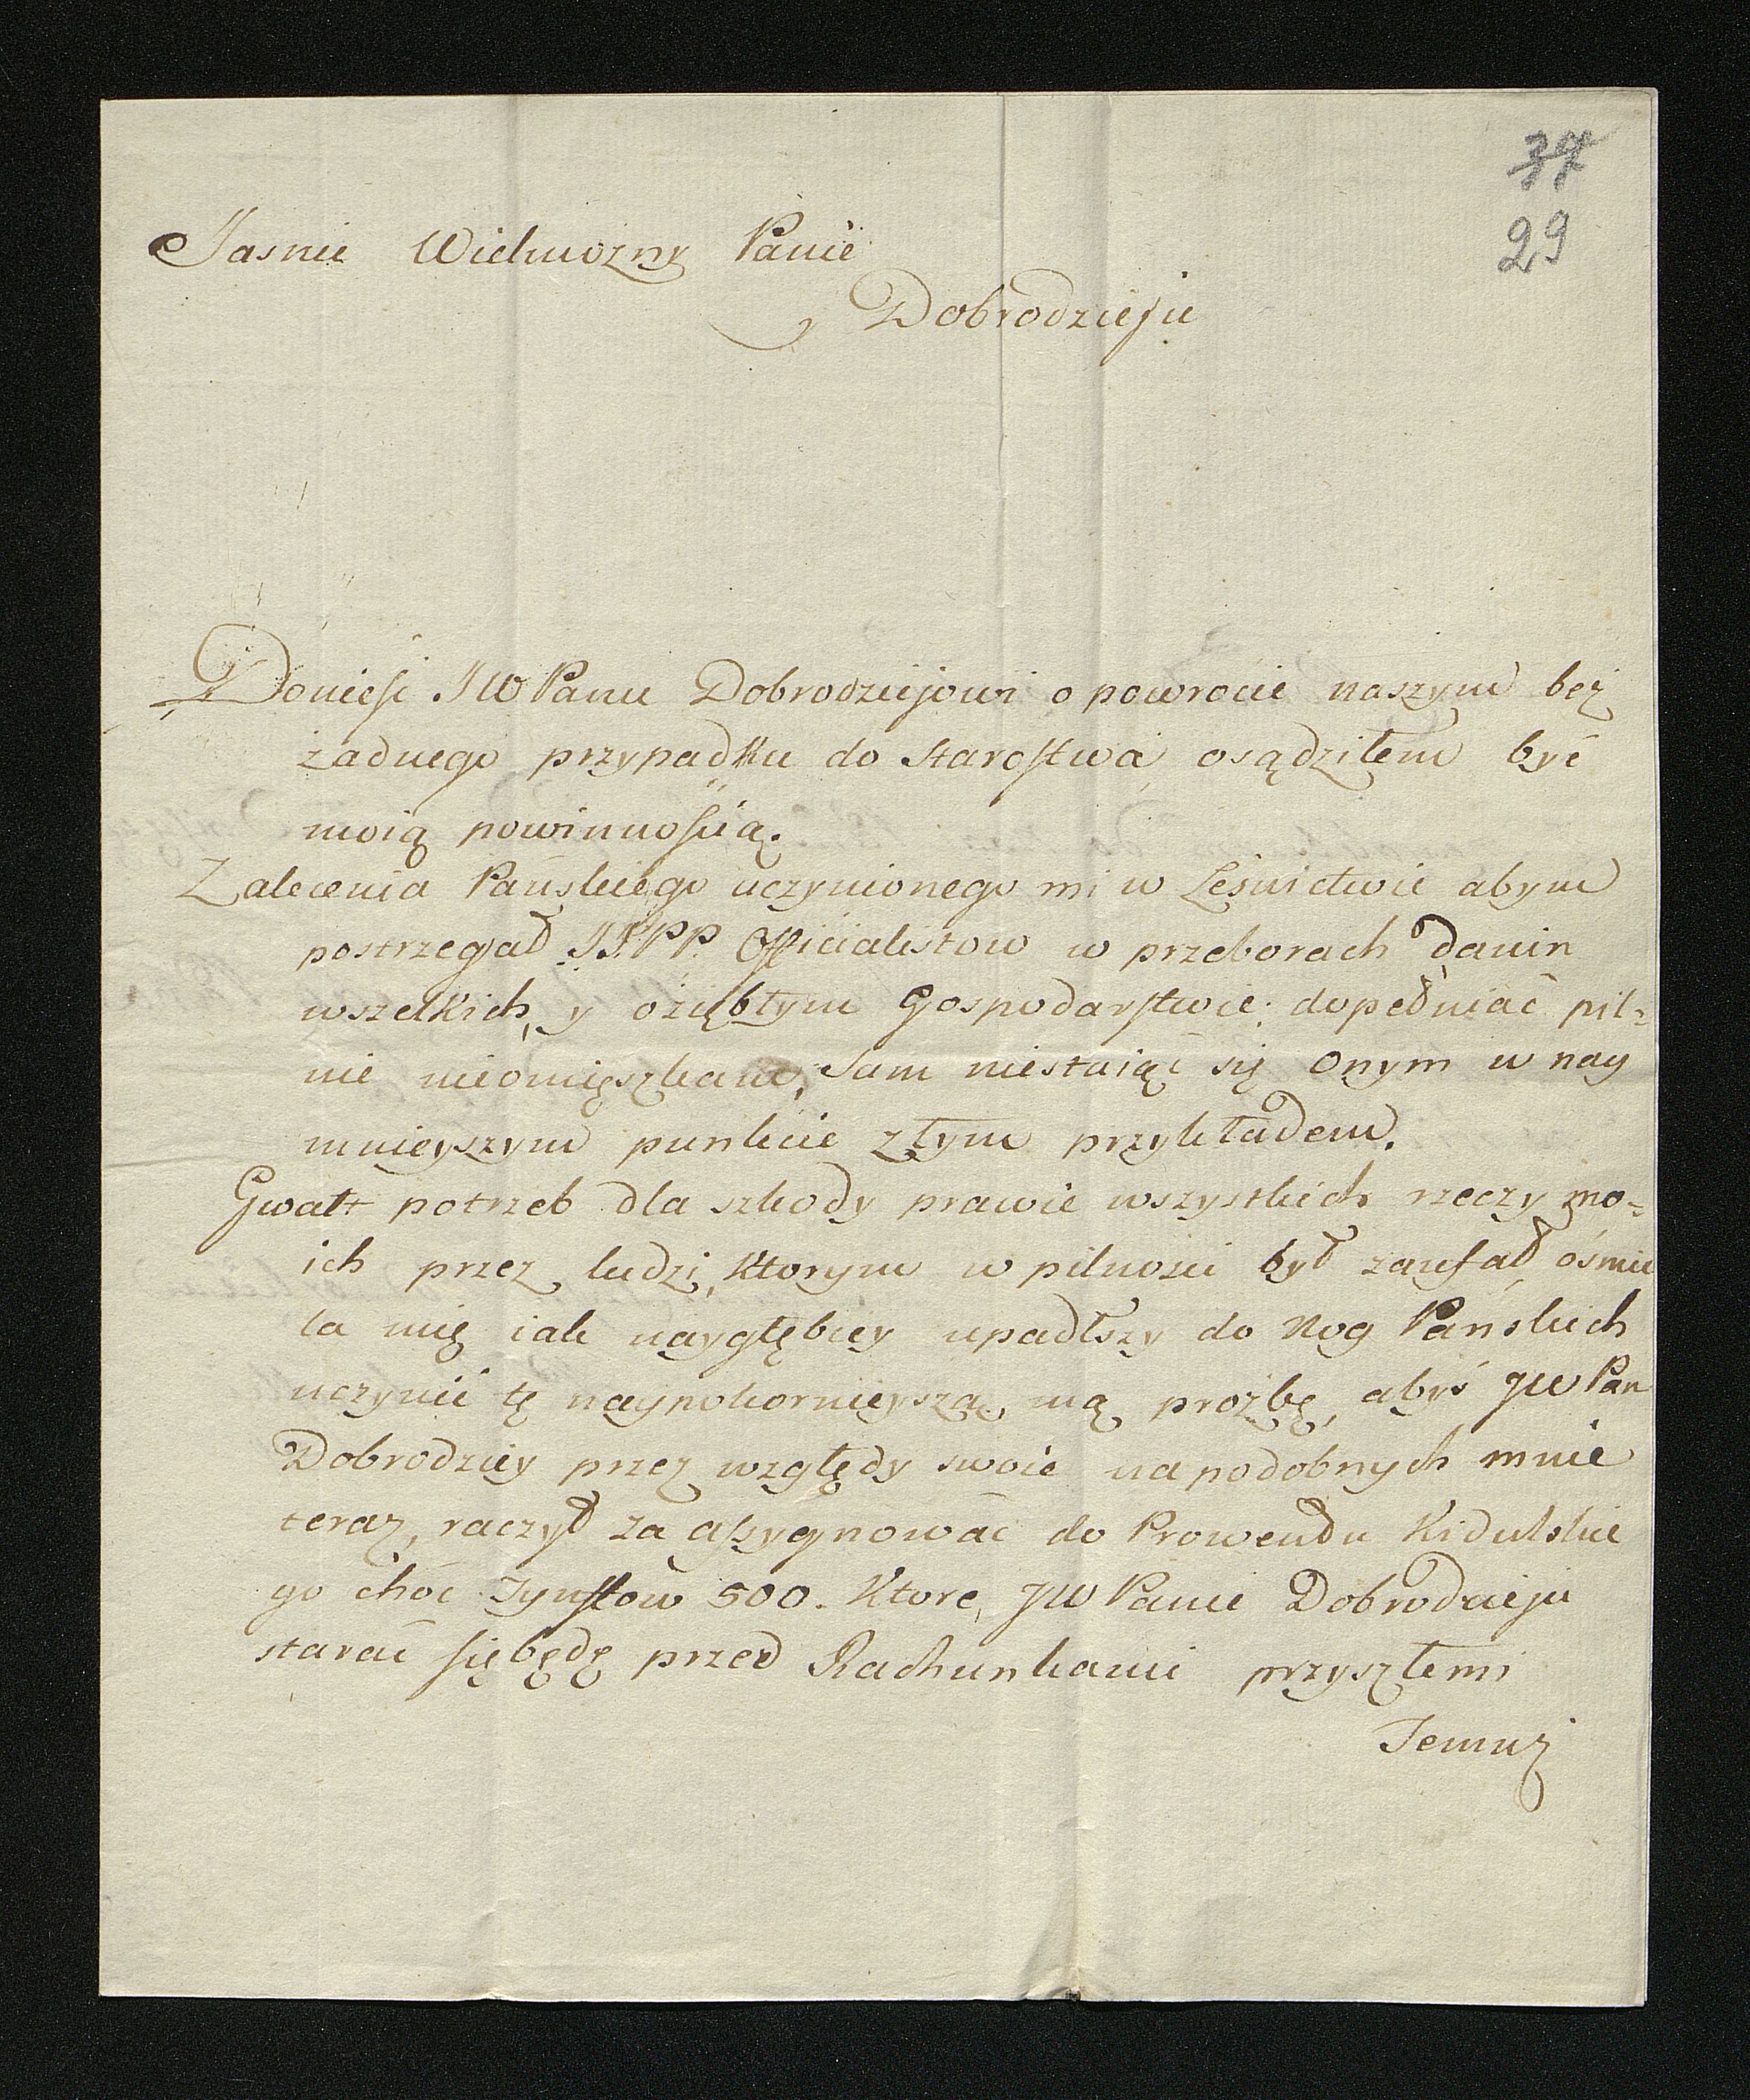 37
29
Jasnie Wielmozny Panie
y Dobrodzieju
Doniesc JW Panu Dobrodziejowi o powrocie naszym bez
żadnego przypadku do Starostwa osądziłem być
moią powinnoscią.
Zalecenia Pańskiego uczynionego mi w Leśnictwie abym
postrzegał JJ.PP. Officialistow w przeborach danin
wszelkich, y oziębłym Gospodarstwie; dopełniać pil=
nie nieomięszkam, Sam niestaiąć się Onym w nay
mnieyszym punkcie złym przykładem.
Gwałt potrzeb dla szkody prawie wszystkich rzeczy mo=
ich przez ludzi, ktorym w pilnosci był zaufał, ośmie
la mię iak naygłębiey upadłszy do Nog Pańskich
uczynić tę naypokornieyszą mą proźbę, abyś JW Pan
Dobrodziey przez względy swoie na podobnych mnie
teraz, raczył za assygnować do Prowentu Kidulskie
go choć Tynfow 500. Ktore, JW Panie Dobrodzieju
starać się będę przed Rachunkami przyszłemi
Jemuż